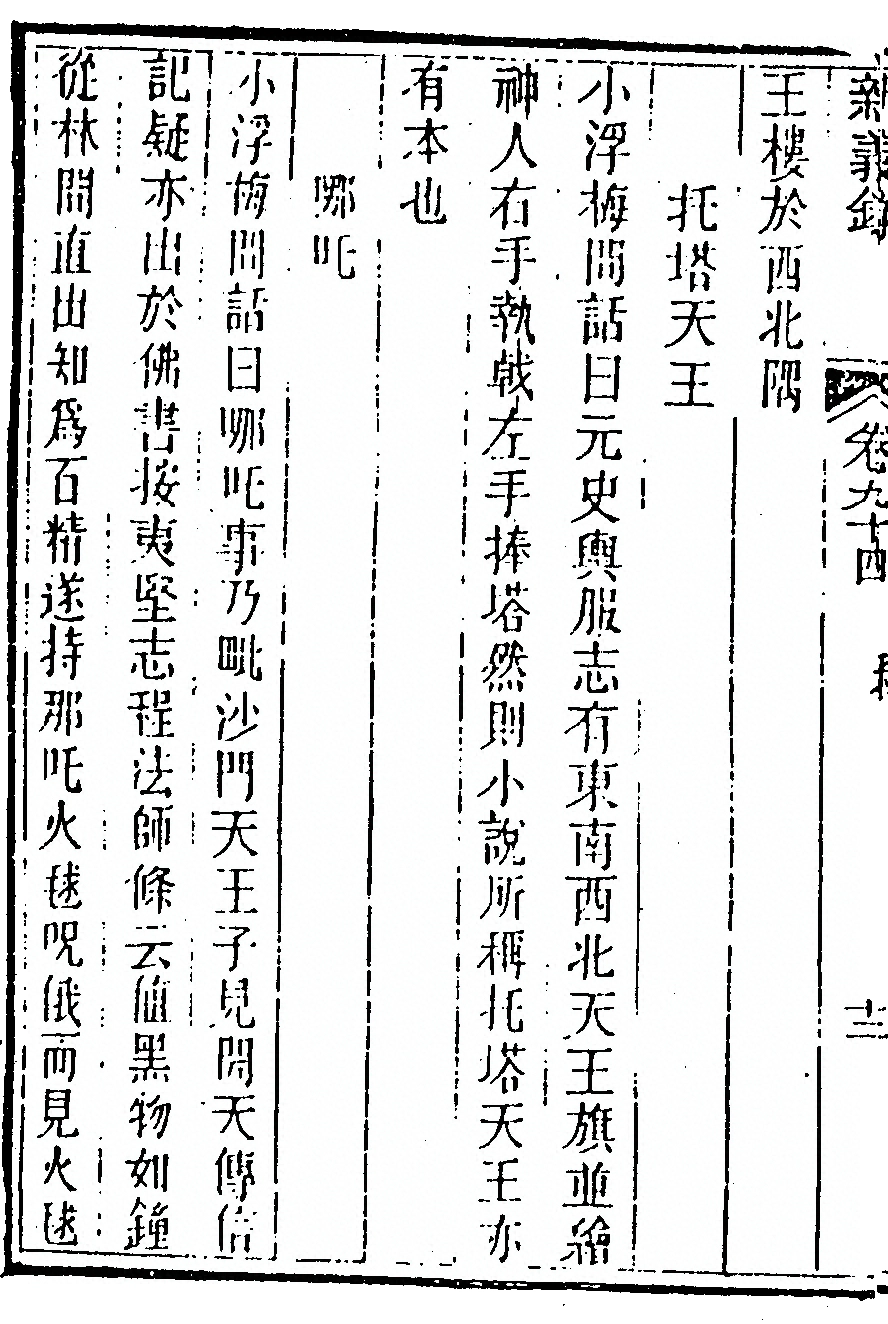 新義錄 卷九十四 十三
王樓於西北隅
托塔天王
小浮梅閒話曰元史輿服志有東南西北天王旗並繪
神人右手執戟左手捧塔然則小說所稱托塔天王亦
有本也
哪吒
小浮梅閒話曰哪吒事乃毗沙門天王子見開天傳信
記疑亦出於佛書按夷堅志程法師條云値黑物如鐘
從林間直出知爲石精遂持那吒火毬呪俄而見火毬